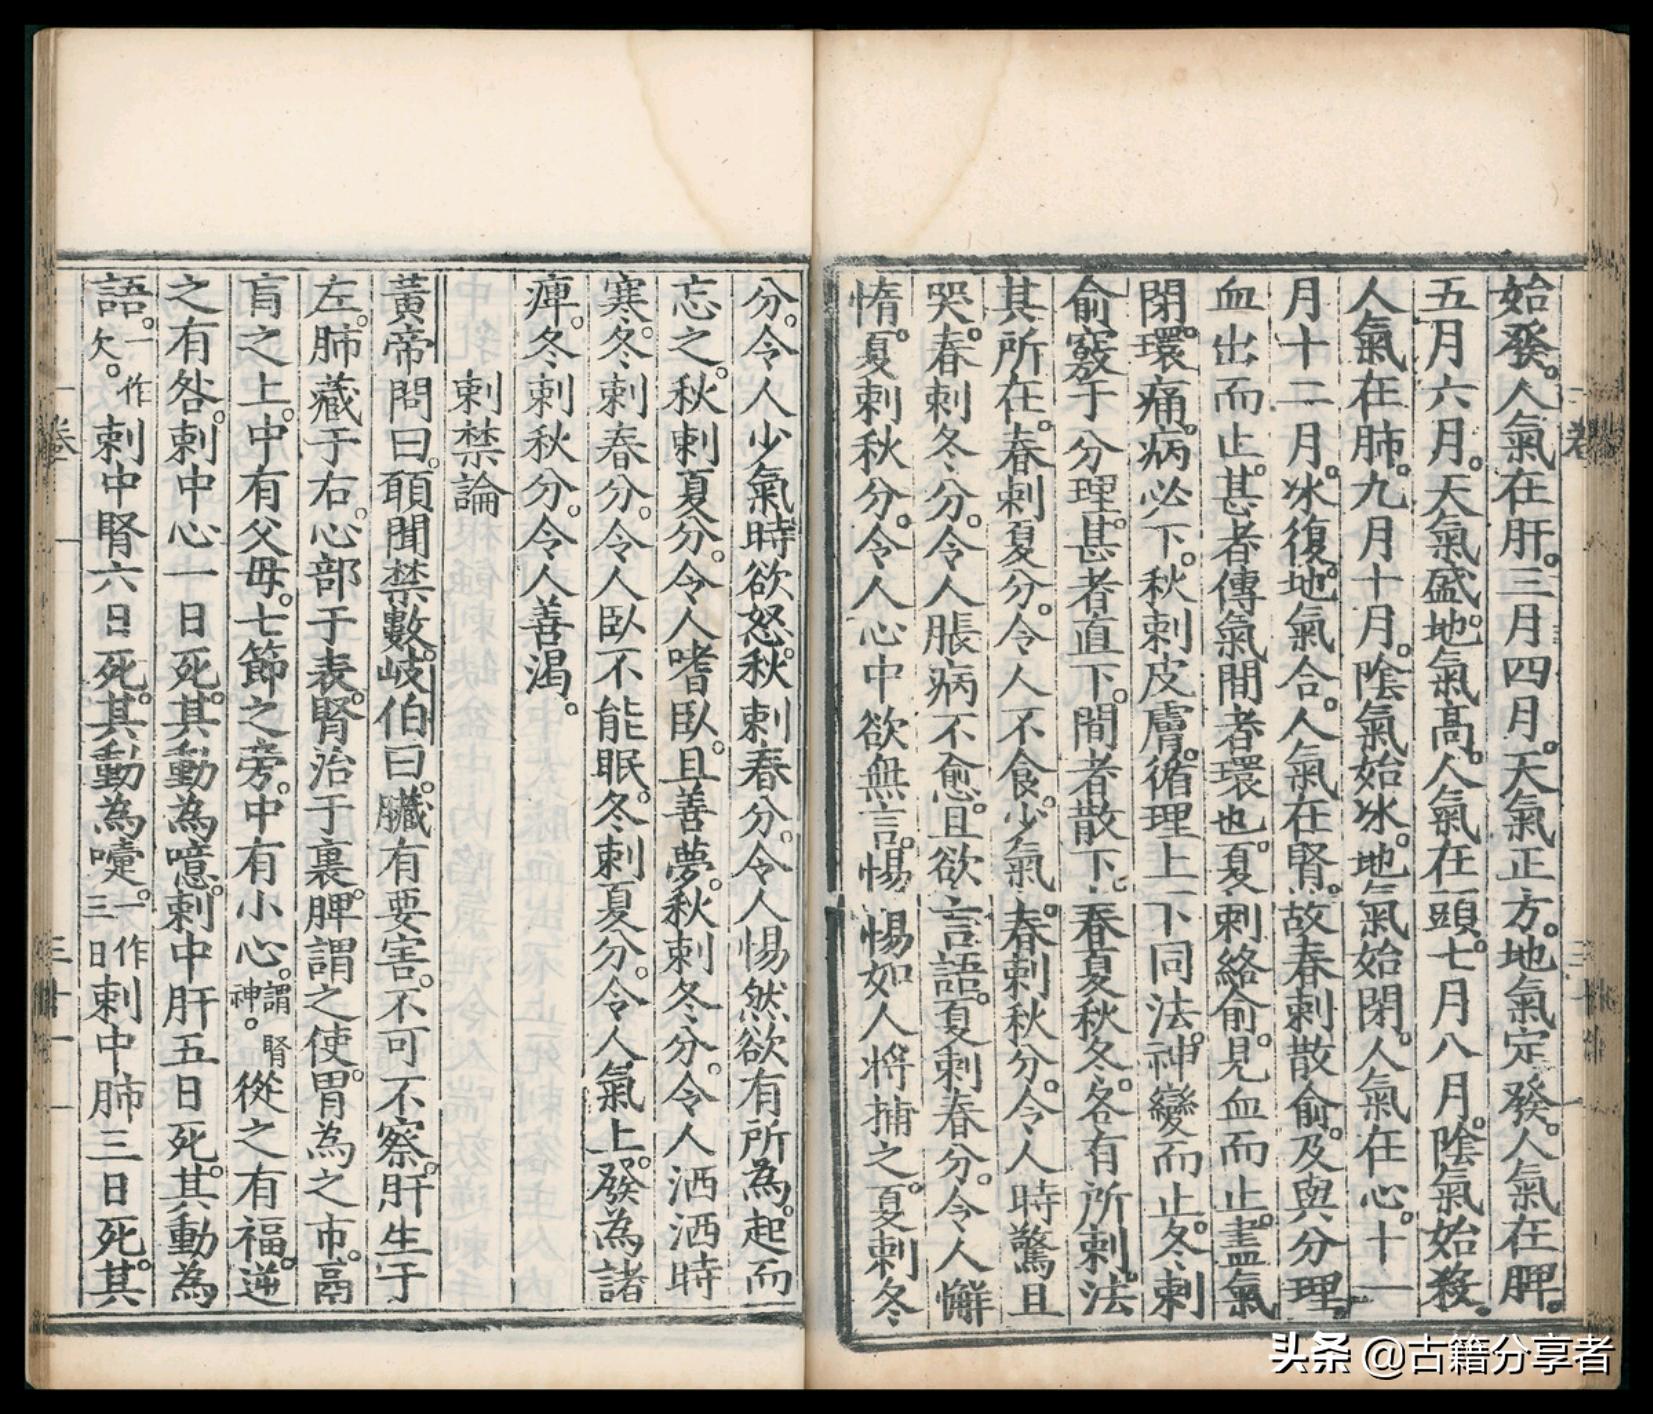 始發。人氣在肝。三月四月。天氣正方。地氣定發。人氣在脾。
五月六月。天氣盛。地氣高。人氣在頭。七月八月。陰氣始殺。
人氣在肺。九月十月。陰氣始冰。地氣始閉。人氣在心。十一
月十二月。冰復。地氣合。人氣在腎。故春刺散俞。及與分理。
血出而止。甚者傳氣。間者環也。夏刺絡俞。見血而止。盡氣
閉。環痛。病必下。秋刺皮膚。循理上下同法。神變而止。冬刺
俞竅于分理。甚者直下。間者散下。春夏秋冬。各有所刺。法
其所在。春刺夏分。令人不食。少氣。春刺秋分。令人時驚且
哭。春刺冬分。令人脹病不愈。且欲言語。夏刺春分。令人懈
惰。夏刺秋分。令人心中欲無言。惕惕如人將捕之。夏刺冬
分。令人少氣時欲怒。秋刺春分。令人惕然欲有所為。起而
忘之。秋刺夏分。令人嗜臥。且善夢。秋刺冬分。令人洒洒時
寒。冬刺春分。令人臥不能眠。冬刺夏分。令人氣上。發為諸
痺。冬刺秋分。令人善渴。
刺禁論
黃帝問曰。願聞禁數。岐伯曰。臟有要害。不可不察。肝生于
左。肺藏于右。心部于表。腎治于裏。脾謂之使。胃為之市。鬲
肓之上。中有父母。七節之旁。中有小心。謂腎神。從之有福。逆
之有咎。刺中心一日死。其動為噫。刺中肝五日死。其動為
語。一作欠。刺中腎六日死。其動為嚏。一作三日刺中肺三日死。其
卷
三十一
头条 @古籍分享者